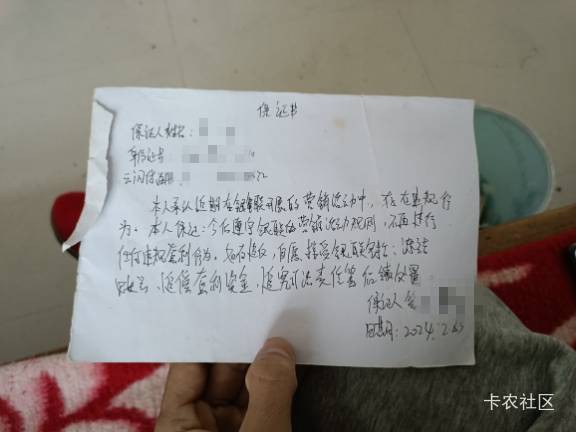 保证书
保证人姓名:
身份证号:
云闪付
本人承认近期在银联开展的营销活动中,存在违规行
为。本人保证:今后遵守银联的营销活动规则,不再进行
任何违规套利行为。如再违反,自愿接受银联
账号、追偿套利资金、追究法责任等后续处置
保证人
日期:2024.
卡农社区